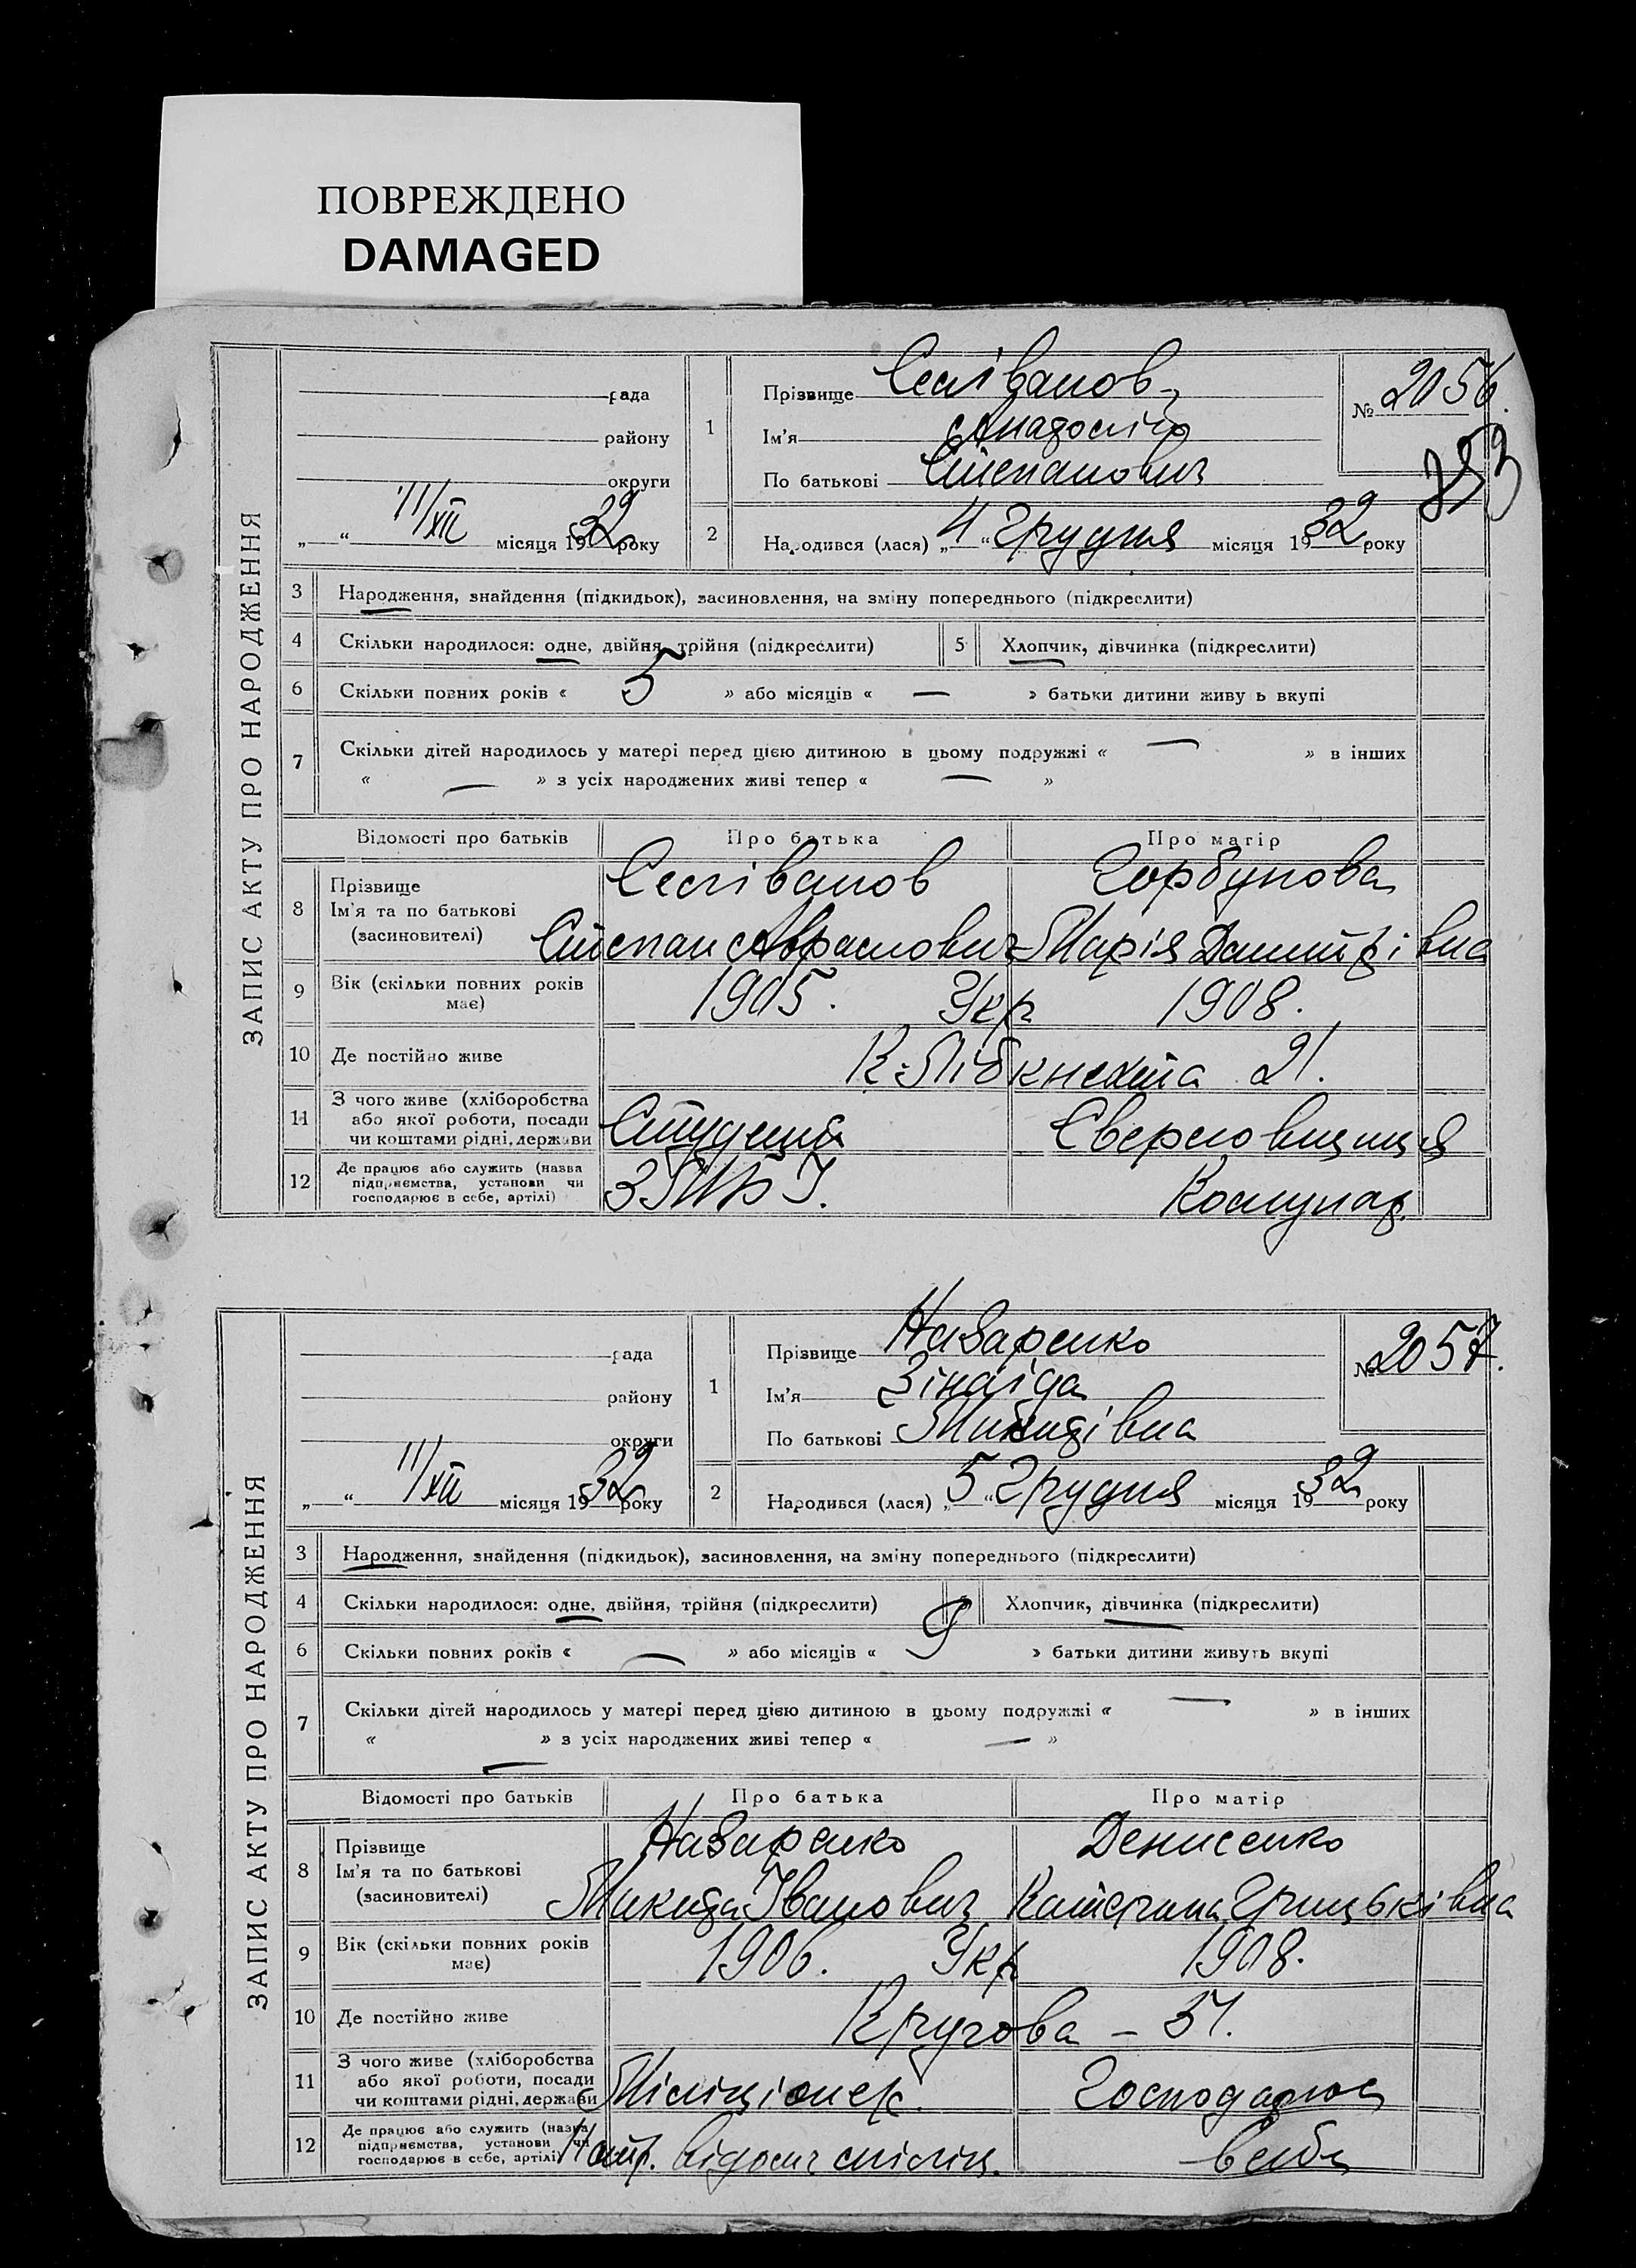 ПОВРЕЖДЕНО
DAMAGED
ЗАПИС АКТУ ПРО НАРОДЖЕННЯ
рада
району
округи
„ “ 11/XII місяця 1932 року
1
Прізвище Селіванов
Ім'я Анатолій
По батькові Степанович
№ 2056.
353
2 Народився (лася) „4“ Грудня місяця 1932 року
3 Народження, знайдення (підкидьок), засиновлення, на зміну попереднього (підкреслити)
4 Скільки народилося: одне, двійня, трійня (підкреслити) 5 Хлопчик, дівчинка (підкреслити)
6 Скільки повних років « 5 » або місяців « — » батьки дитини живу ь вкупі
7 Скільки дітей народилось у матері перед цією дитиною в цьому подружжі « — » в інших
« — » з усіх народжених живі тепер « — »
Відомості про батьків Про батька Про матір
8 Прізвище Ім'я та по батькові (засиновителі)
Селіванов Горбунова
Степан Абрамович Марія Дмитрівна
9 Вік (скільки повних років має) 1905. Укр 1908.
10 Де постійно живе К. Лібкнехта 21.
11 З чого живе (хліборобства або якої роботи, посади чи коштами рідні, держави Студент
12 Де працює або служить (назва підприємства, установи чи господарює в себе, артілі)
ЗАПИС АКТУ ПРО НАРОДЖЕННЯ
рада
району
округи
„ “ 11/XII місяця 1932 року
1
Прізвище Назаренко
Ім'я Зінаіда
По батькові Микитівна
№ 2057.
2 Народився (лася) „5“ Грудня місяця 1932 року
3 Народження, знайдення (підкидьок), засиновлення, на зміну попереднього (підкреслити)
4 Скільки народилося: одне, двійня, трійня (підкреслити) Хлопчик, дівчинка (підкреслити)
6 Скільки повних років « — » або місяців « 9 » батьки дитини живуть вкупі
7 Скільки дітей народилось у матері перед цією дитиною в цьому подружжі « — » в інших
« — » з усіх народжених живі тепер « — »
Відомості про батьків Про батька Про матір
8 Прізвище Ім'я та по батькові (засиновителі)
Назаренко Денисенко
Микита Іванович Катерина Грицьківна
9 Вік (скільки повних років має) 1906. Укр 1908.
10 Де постійно живе Кругова – 51.
11 З чого живе (хліборобства або якої роботи, посади чи коштами рідні, держави Міліціонер. Господарює
12 Де працює або служить (назва підприємства, установи чи господарює в себе, артілі) міліц. в себе